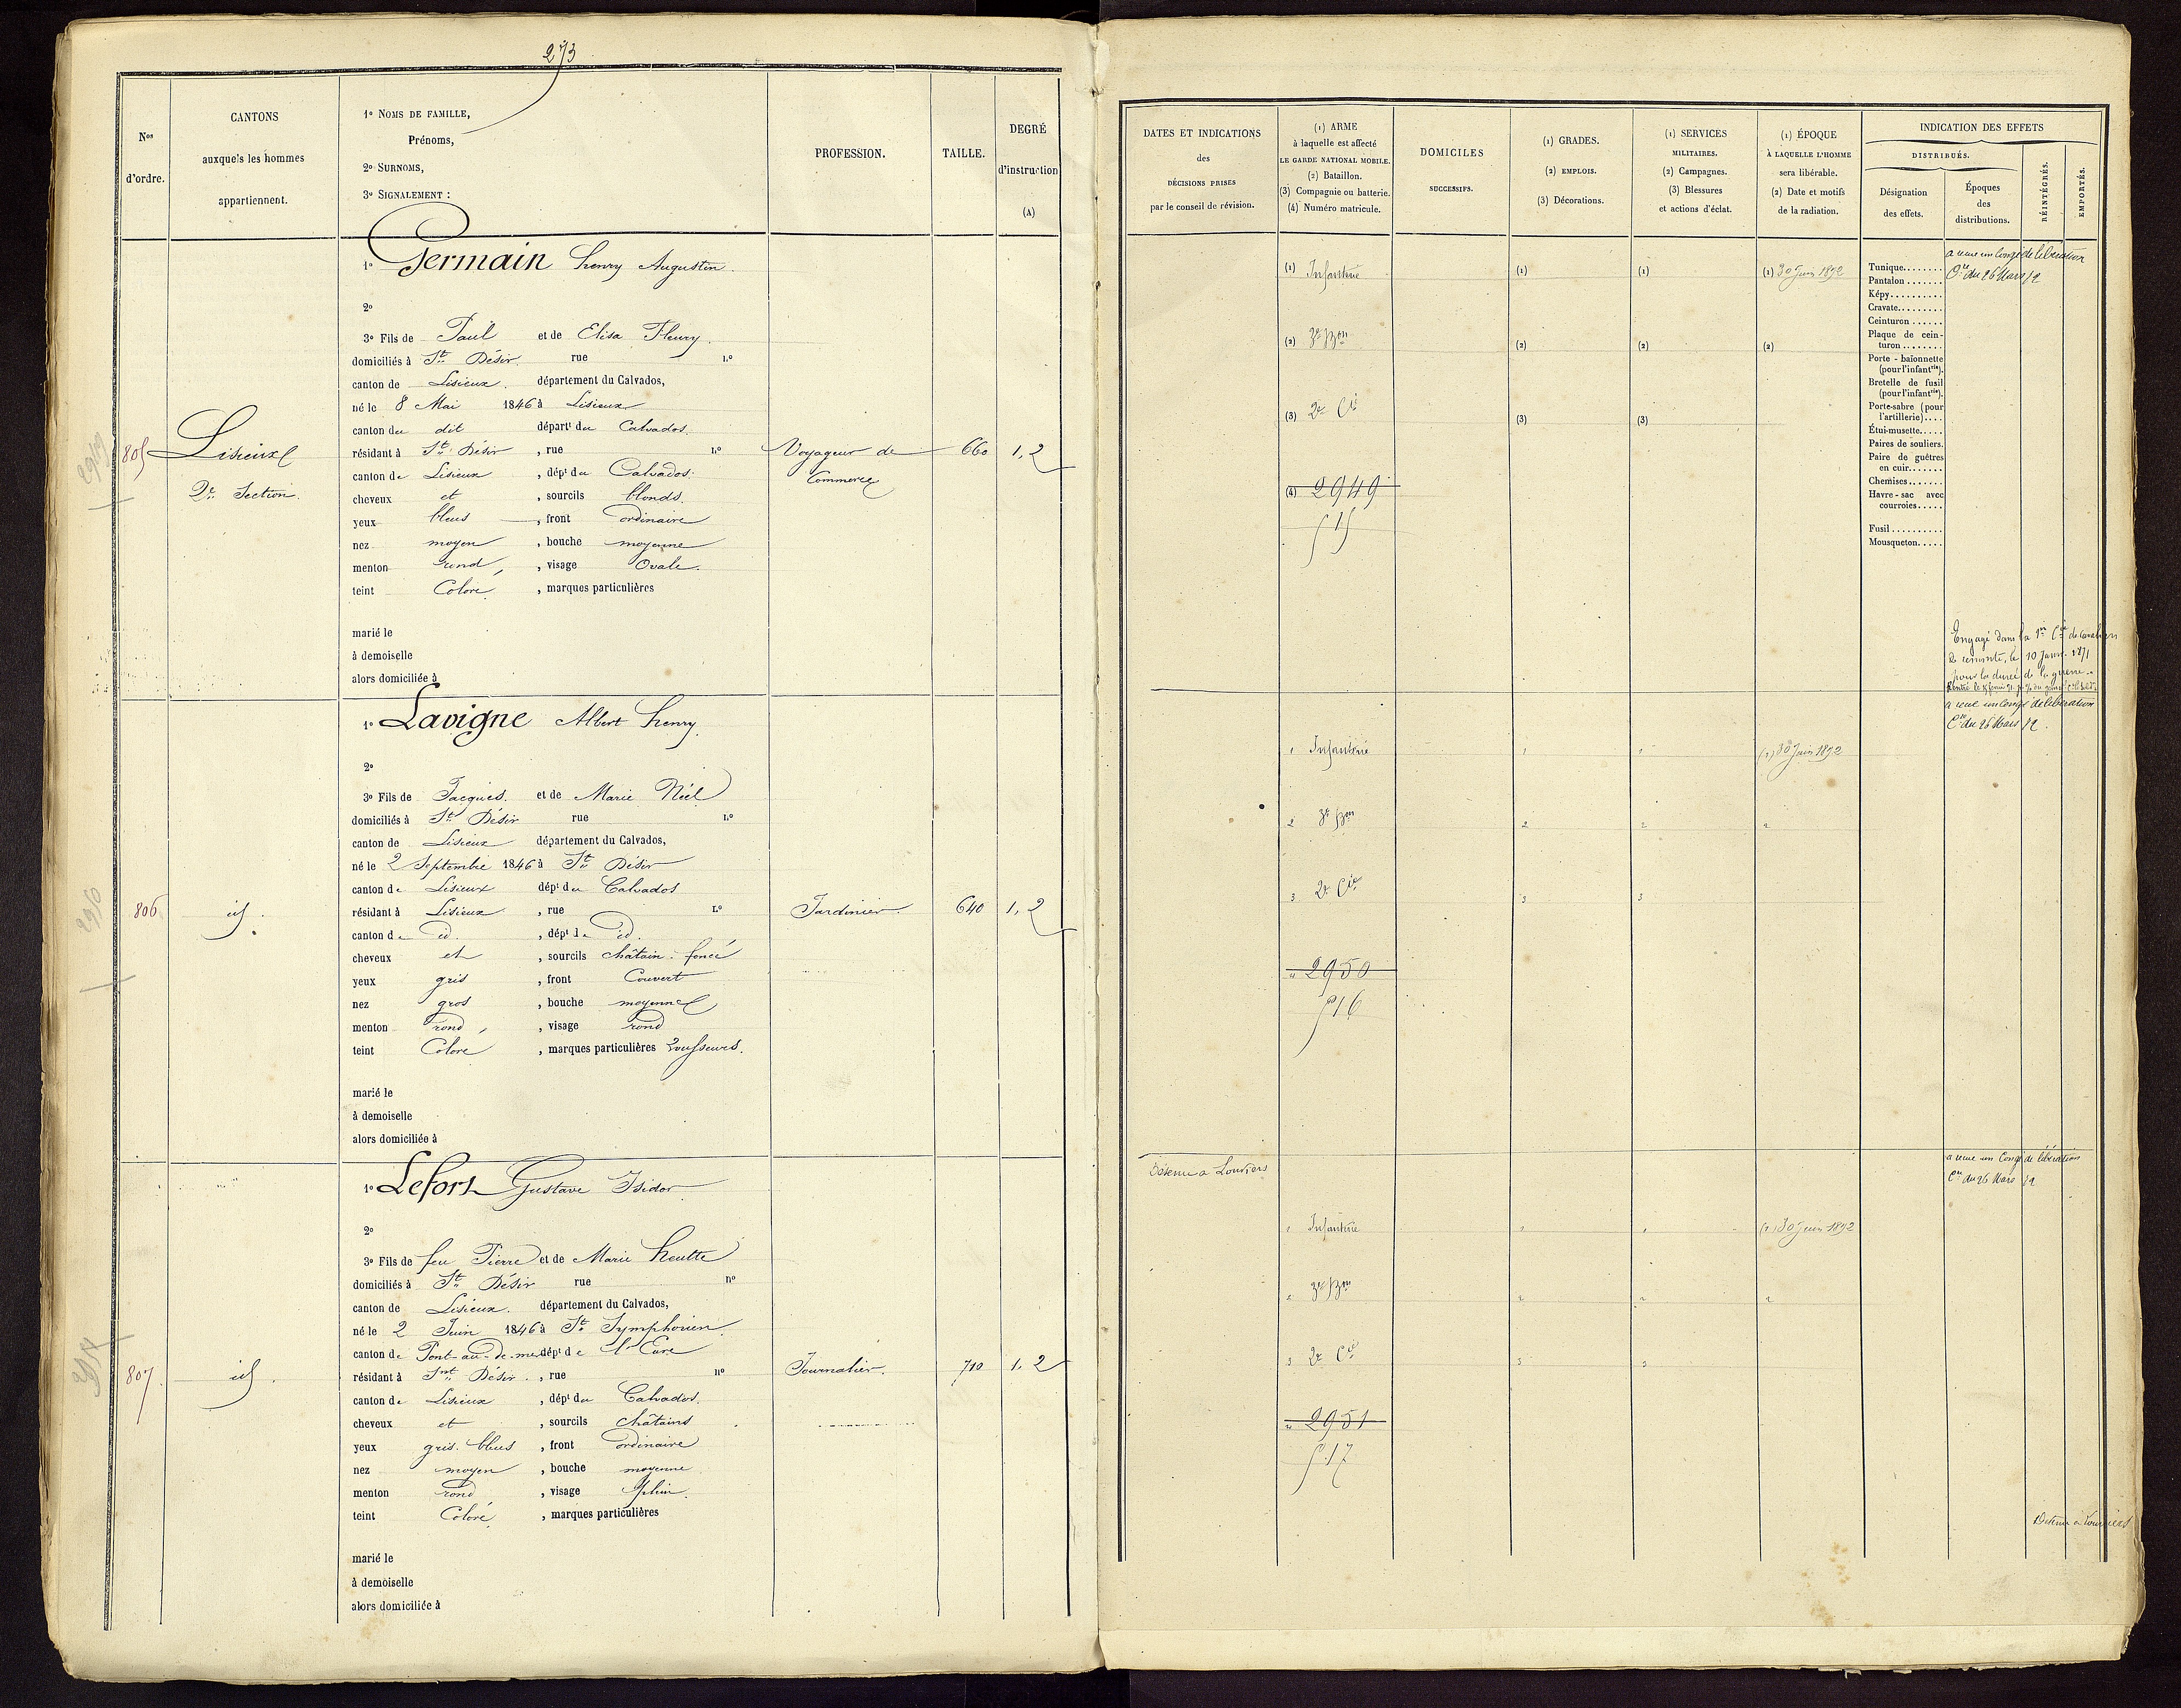 273
Nos
d'ordre.
CANTONS
auxquels les hommes
appartiennent.
1º NOMS DE FAMILLE,
Prénoms,
2º SURNOMS,
3º SIGNALEMENT :
PROFESSION.
TAILLE.
DEGRÉ
d'instruction
(A)
805
Lisieux
2e Section.
1º Germain henry Augustin.
2º
3º Fils de Paul et de Elisa Fleury.
domiciliés à St Désir rue nº
canton de Lisieux. département du Calvados,
né le 8 Mai 1846 à Lisieux
canton du dit départt du Calvados.
résidant à St Désir , rue nº
canton de Lisieux , dépt du Calvados.
cheveux et , sourcils blonds.
yeux bleus , front ordinaire
nez moyen , bouche moyenne
menton rond , visage Ovale.
teint Coloré , marques particulières
marié le
à demoiselle
alors domiciliée à
Voyageur de
Commerce
660
1, 2
806
id.
1º Lavigne Albert henry.
2º
3º Fils de Jacques. et de Marie Niel
domiciliés à St Désir rue nº
canton de Lisieux département du Calvados,
né le 2 Septembre 1846 à St Désir
canton de Lisieux dépt du Calvados
résidant à Lisieux , rue nº
canton de id. , dépt de id.
cheveux et , sourcils châtain foncé
yeux gris , front Couvert
nez gros , bouche moyenne
menton rond , visage rond
teint Coloré , marques particulières rousseurs.
marié le
à demoiselle
alors domiciliée à
Jardinier.
640
1, 2
807.
id.
1º Lefort Gustave Isidor
2º
3º Fils de feu Pierre et de Marie heutte
domiciliés à St Désir rue nº
canton de Lisieux. département du Calvados,
né le 2 Juin 1846 à St Symphorien.
canton de Pont-au-de-mer dépt de l'Eure
résidant à St Désir. , rue nº
canton de Lisieux , dépt du Calvados.
cheveux et , sourcils châtains
yeux gris. bleus , front ordinaire
nez moyen , bouche moyenne
menton rond , visage plein.
teint Coloré , marques particulières
marié le
à demoiselle
alors domiciliée à
Journalier.
710
1. 2
DATES ET INDICATIONS
des
DÉCISIONS PRISES
par le conseil de révision.
(1) ARME
à laquelle est affecté
LE GARDE NATIONAL MOBILE.
(2) Bataillon.
(3) Compagnie ou batterie.
(4) Numéro matricule.
DOMICILES
SUCCESSIFS.
(1) GRADES.
(2) EMPLOIS.
(3) Décorations.
(1) SERVICES
MILITAIRES.
(2) Campagnes.
(3) Blessures
et actions d'éclat.
(1) ÉPOQUE
À LAQUELLE L'HOMME
sera libérable.
(2) Date et motifs
de la radiation.
INDICATION DES EFFETS
DISTRIBUÉS.
Désignation
des effets.
Époques
des
distributions.
RÉINTÉGRÉS.
EMPORTÉS.
(1) Infanterie
(2) 3e Bon
(3) 2e Cie
(4) 2949
515
(1)
(2)
(3)
(1)
(2)
(3)
(1) 30 Juin 1872
(2)
Tunique.......
Pantalon.......
Képy..........
Cravate........
Ceinturon......
Plaque de cein-
turon........
Porte-baïonnette
(pour l'infantrie).
Bretelle de fusil
(pour l'infantrie).
Porte-sabre (pour
l'artillerie)....
Étui-musette.....
Paires de souliers.
Paire de guêtres
en cuir.......
Chemises.......
Havre-sac avec
courroies.....
Fusil..........
Mousqueton.....
a reçu un Congé de libération
Cre du 26 Mars 72
Engagé dans la 1re Cie de Cavaliers
de remonte, le 10 Janv. 1871
pour la durée de la guerre.
a reçu un Congé de libération
Cre du 26 Mars 72.
1 Infanterie
2 3e Bon
3 2e Cie
4 2950
516
1
2
3
1
2
3
(1) 30 Juin 1872
2
Détenu à Louviers
a reçu un Congé de libération
Cre du 26 Mars 72
1 Infanterie
2 3e Bon
3 2e Cie
4 2951
517
1
2
3
1
2
3
(1) 30 Juin 1872
2
Détenu à Louviers